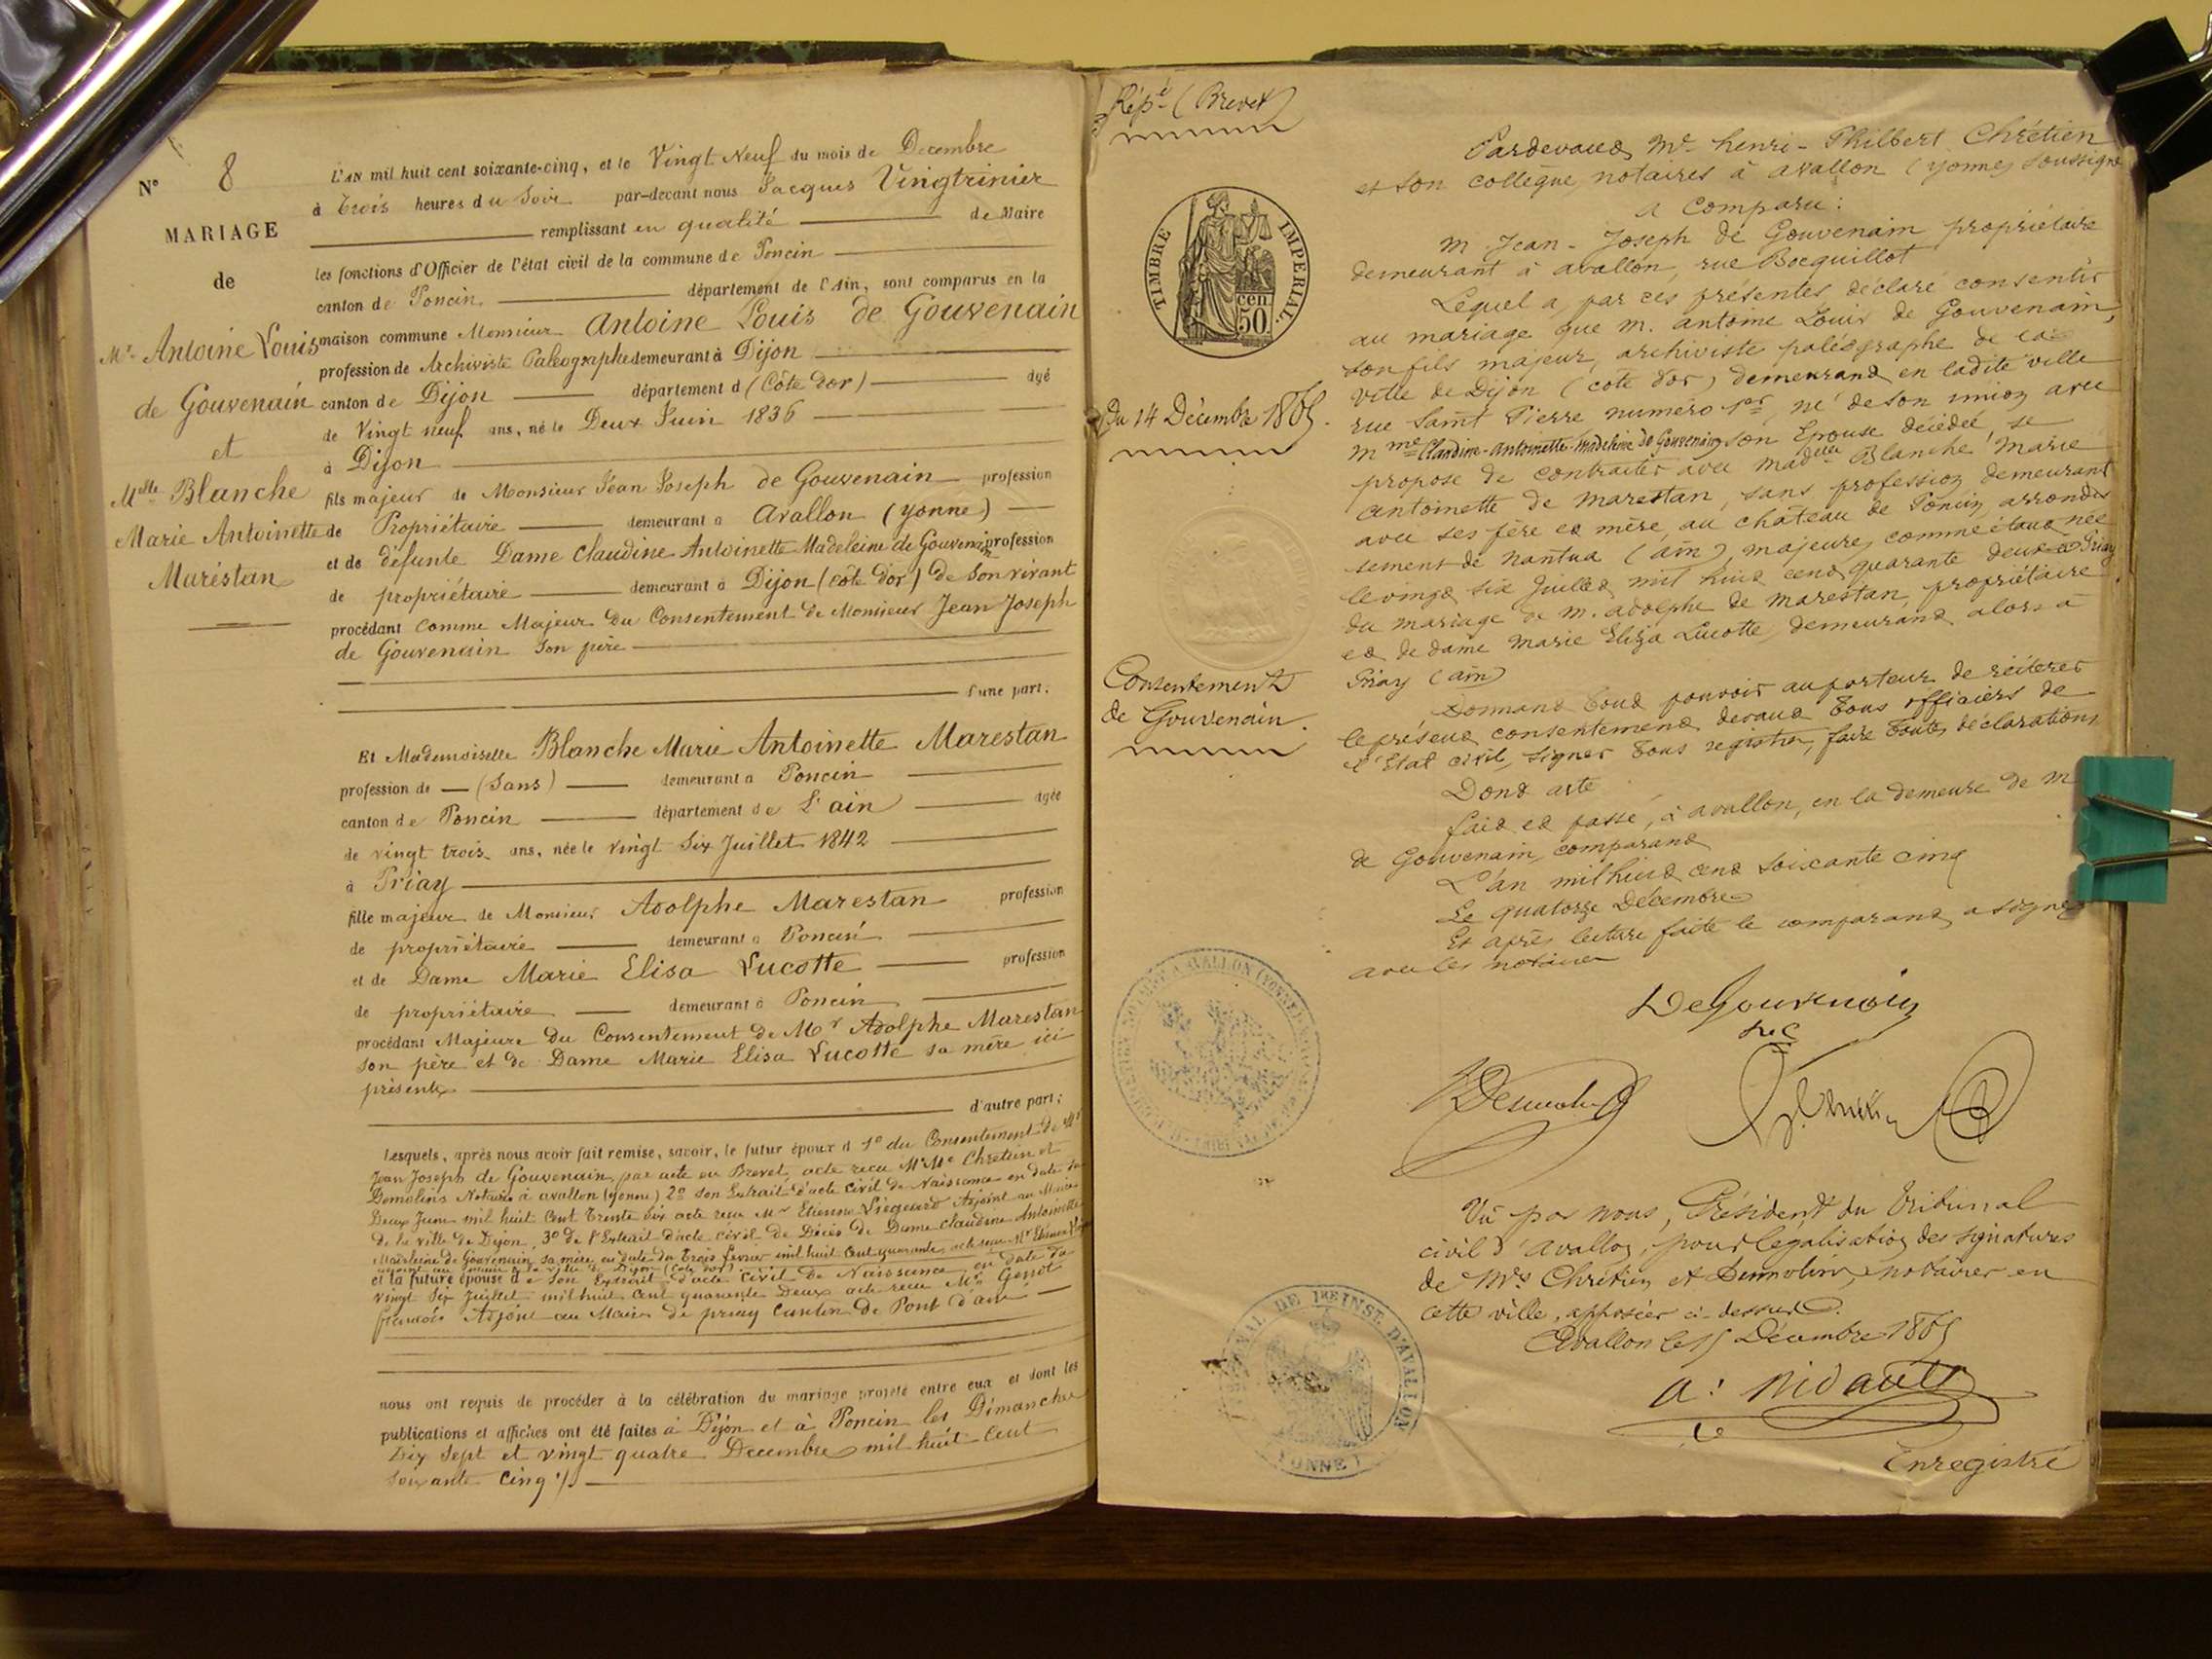 N° 8
MARIAGE
de
Mr Antoine Louis
de Gouvenain
et
Melle Blanche
Marie Antoinette
Maréstan
L'AN mil huit cent soixante-cinq, et le Vingt Neuf du mois de Decembre
à trois heures du Soir par-devant nous Jacques Vingtrinier
remplissant en qualité de Maire
les fonctions d'Officier de l'état civil de la commune de Poncin
canton de Poncin département de l'Ain, sont comparus en la
maison commune Monsieur Antoine Louis de Gouvenain
profession de Archiviste Paleographe demeurant à Dijon
canton de Dijon département d (Côte d'or) âgé
de Vingt neuf ans, né le Deux Juin 1836
à Dijon
fils majeur de Monsieur Jean Joseph de Gouvenain profession
de Propriétaire demeurant à Avallon (yonne)
et de défunte Dame Claudine-Antoinette Madeleine de Gouvenain profession
de propriétaire demeurant à Dijon (côte d'or) de Son vivant
procédant comme Majeur du Consentement de Monsieur Jean Joseph
de Gouvenain Son père
d'une part;
Et Mademoiselle Blanche Marie Antoinette Marestan
profession de (Sans) demeurant à Poncin
canton de Poncin département de L'ain âgée
de vingt trois ans, née le vingt Six Juillet 1842
à Priay
fille majeure de Monsieur Adolphe Marestan profession
de propriétaire demeurant à Poncin
et de Dame Marie Elisa Lucotte profession
de propriétaire demeurant à Poncin
procédant Majeure du Consentement de Mr Adolphe Marestan
son père et de Dame Marie Elisa Lucotte sa mère ici
présents
d'autre part;
Lesquels, après nous avoir fait remise, savoir, le futur époux d 1° du Consentement de Mr
Jean Joseph de Gouvenain, par acte en Brevet, acte recu Chretien et
Demolins Notaires à avallon (yonne) 2° son Extrait d'acte civil de Naissance en date du
Deux Juin mil huit Cent Trente Six acte recu Mr Etienne Liégeard Adjoint au Maire
de la ville de Dijon, 3° de l'Extrait d'acte civil de Décès de Dame Claudine Antoinette
Madeleine de Gouvenain sa mère en date du Trois fevrier mil huit Cent quarante, acte recu Mr Etienne
adjoint au Maire de la ville de Dijon (Côte d'or)
et la future épouse d e Son Extrait d'acte civil de Naissance en date du
vingt Six Juillet mil huit Cent quarante Deux acte recu Mr
françois Adjoint au Maire de priay Canton de Pont d'ain
nous ont requis de procéder à la célébration du mariage projeté entre eux et dont les
publications et affiches ont été faites à Dijon et à Poncin les Dimanches
Dix Sept et vingt quatre Decembre mil huit Cent
Soixante Cinq
Répé (Brevet)
TIMBRE IMPERIAL
50 cen
Du 14 Décembre 1865.
Consentement
de Gouvenain.
Pardevant Me henri-Philbert Chrétien
et son collègue, notaires à avallon (yonne) soussignés
a comparu:
M. Jean-Joseph de Gouvenain propriétaire
demeurant à avallon, rue Bocquillot
Lequel a, par ces présentes, déclaré consentir
au mariage que m. antoine Louis de Gouvenain,
son fils majeur, archiviste paléographe de la
ville de Dijon (côte d'or) demeurant en ladite ville
rue Saint Pierre numéro 1er, né de son union avec
Mme Claudine-Antoinette-Madeleine de Gouvenain son Epouse décédée, se
propose de contracter avec Madelle Blanche Marie
antoinette de Marestan, sans profession demeurant
avec ses père et mère, au château de Poncin arrondis
sement de Nantua (ain), majeure, comme étant née
le vingt six Juillet mil huit cent quarante deux à Priay
du mariage de m. adolphe de Marestan, propriétaire
et de dame Marie Eliza Lucotte, demeurant alors à
Priay (ain)
Donnant tout pouvoir au porteur de réiterer
le présent consentement devant tous officiers de
l'Etat civil, signer tous registres, faire toutes déclarations
Dont acte
fait et passé, à avallon, en la demeure de M
de Gouvenain, comparant
L'an mil huit cent soixante cinq
Le quatorze Décembre
Et après lecture faite le comparant, a signé
avec les notaires
DeGouvenain
Vu par nous, Président du tribunal
civil d'avallon, pour légalisation des signatures
de Mes Chrétien et Demolins, notaires en
cette ville, apposées ci-dessus.
Avallon le 15 Décembre 1865
TRIBUNAL DE 1RE INST. D'AVALLON
(YONNE)
Enregistré